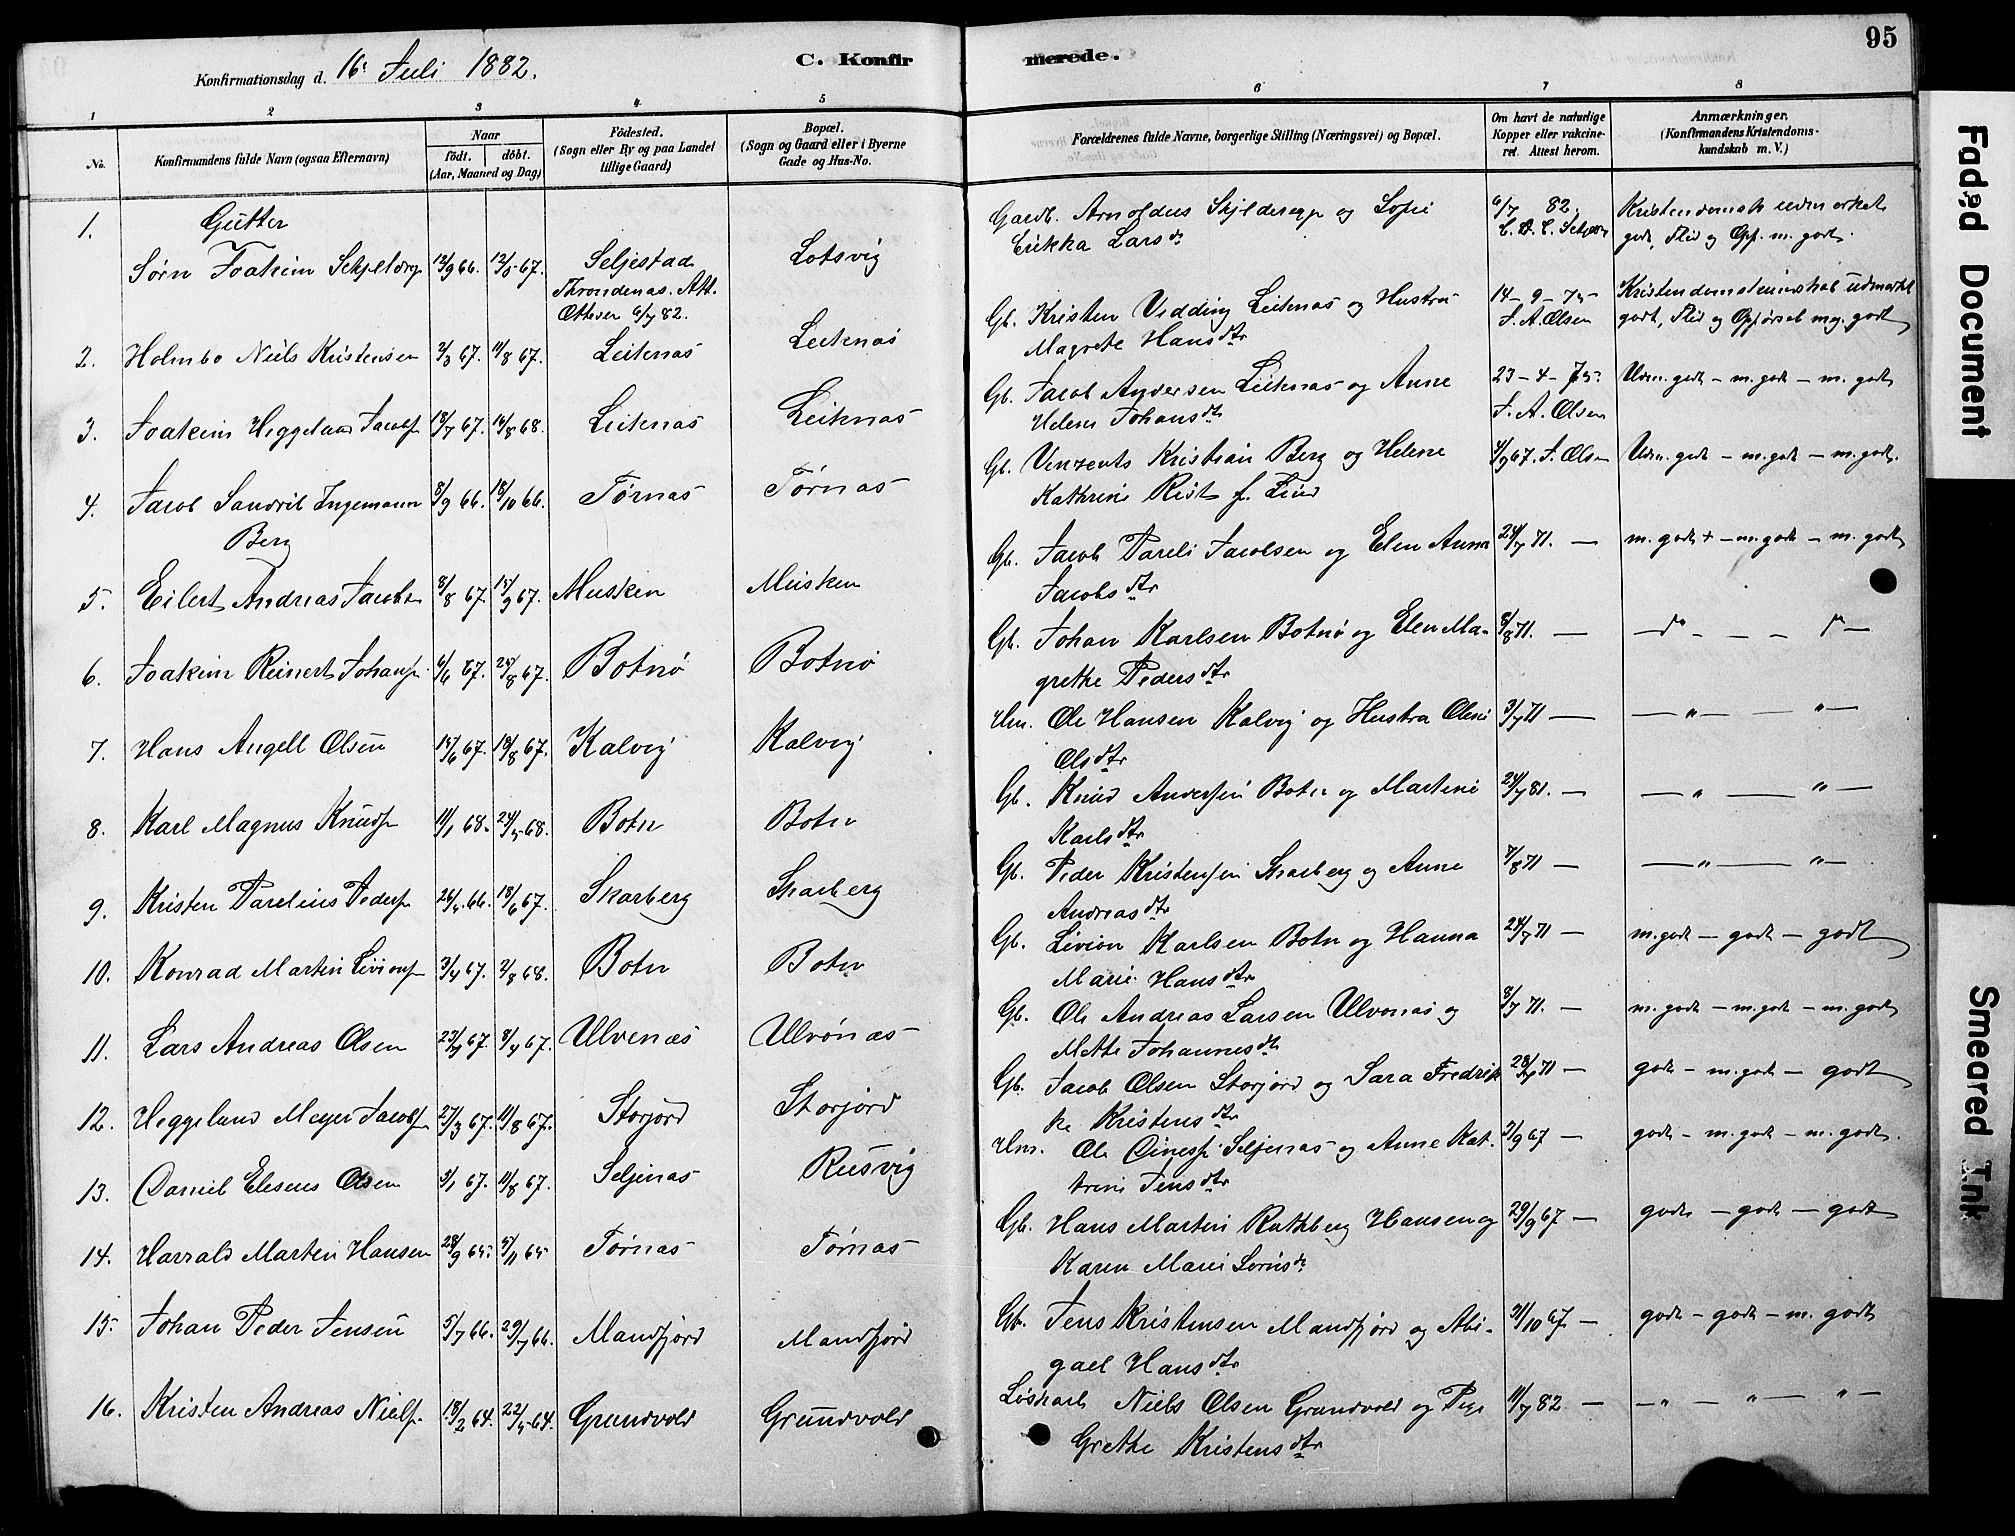 95
Konfirmationsdag d. 16. Juli 1882.
C. Konfirmerede.
1 2 3 4 5 6 7 8
No.
Konfirmandens fulde Navn (ogsaa Efternavn)
Naar
født. døbt.
(Aar, Maaned og Dag)
Fødested.
(Sogn eller By og paa Landet
tillige Gaard)
Bopæl.
(Sogn og Gaard eller i Byerne
Gade og Hus-No.
Forældrenes fulde Navne, borgerlige Stilling (Næringsvei) og Bopæl.
Om havt de naturlige
Kopper eller vakcine-
ret. Attest herom.
Anmærkninger.
(Konfirmandens Kristendoms-
kundskab m. V.)
Gutter
1. Sørn Joakim 12/9 66. 12/5 67. Seljestad Lotsvig
Throndenas. Att.
6/7 82.
Gaardb. Arnoldus og Sofie
Erikka Larsdr
6/7 82.
Kristendomsk udmærket
godt, Flid og Opf. m. godt.
2. Holmbo Niels Kristensen 2/3 67. 11/8 67. Leiknas Leiknas
Gb. Kristen Vedding Leiknas og Hustru
Magrete Hansdtr
14-9-75
J. A. Olsen
Kristendomskundskab udmærket
godt, Flid og Opførsel mg. godt
3. Joakim Heggeland Jacobs 18/7 67. 14/8 68. Leiknas Leiknas
Gb. Jacob Andersen Leiknas og Anne
Helene Johansdtr
23-4-75.
J. A. Olsen
Udm. godt - m. godt - m. godt
4. Jacob Sandvik Ingemann 8/9 66. 18/10 66. Tørnas Tørnas
Berg
Gb. Vinzents Kristian Berg og Helene
Kathrine Rist f. Lund
4/9 67. J. Olsen
Udm. godt - m. godt - m. godt.
5. Eilert Andreas Jacobs 8/8 67. 15/9 67. Musken Musken
Gb. Jacob Pareli Jacobsen og Elen Anna
Jacobsdtr
24/7 71. —
m. godt + - m. godt - m. godt
6. Joakim Reinert Johans 6/6 67. 25/8 67. Botnø Botnø
Gb. Johan Karlsen Botnø og Elen Ma-
grethe Pedersdtr
8/8 71. —
7. Hans Angell Olsen 15/6 67. 18/8 67. Kalvig Kalvig
Hm. Ole Hansen Kalvig og Hustru Oline
Olsdtr
3/7 71 —
— " — — " —
8. Karl Magnus Knuds 11/1 68. 24/5 68. Botn Botn
Gb. Knud Andersen Botn og Martine
Karlsdtr
24/7 81. —
— " — " —
9. Kristen Parelius Peders 26/4 66. 18/6 67. Skarberg Skarberg
Gb. Peder Kristensen Skarberg og Anne
Andreasdtr
7/8 71 —
— " — " —
10. Konrad Martin Livions 3/4 67. 2/8 68. Botn Botn
Gb. Livion Karlsen Botn og Hanna
Marie Hansdtr
24/7 71 —
m. godt - godt - godt
11. Lars Andreas Olsen 23/4 67 8/7 67. Ulvenas Ulvønas
Gb. Ole Andreas Larsen Ulvønas og
Mette Johannesdtr
8/7 71. —
m. godt - m. godt - m. godt
12. Heggeland Meyer Jacobs 27/3 67. 11/8 67. Storjord Storjord
Gb. Jacob Olsen Storjord og Sara Fredrik
ke Kristensdtr
28/7 71 —
godt - m. godt - godt
13. Daniel Eleseus Olsen 3/1 67. 11/8 67. Seljenas Rusvig
Hm. Ole Seljenas og Anne Kat.
trine Jensdtr
3/9 67 —
godt - m. godt - m. godt.
14. Harrald Martin Hansen 28/9 65. 5/11 65 Tørnas Tørnas
Gb. Hans Martin Rathberg Hansen og
Karen Marie Sørnsdr
29/9 67 —
godt - godt - godt
15. Johan Peder Jensen 5/7 66. 29/7 66. Mandfjord Mandfjord
Gb. Jens Kristensen Mandfjord og Abi-
gael Hansdtr
31/10 67. —
godt - godt - m. godt
16. Kristen Andreas Niels 18/2 64. 22/5 64. Grundvold Grundvold
Løskarl Niels Olsen Grundvold og Pige
Grethe Kristensdtr
11/7 82. —
— " — " — " —
Faded Document
Smeared Ink